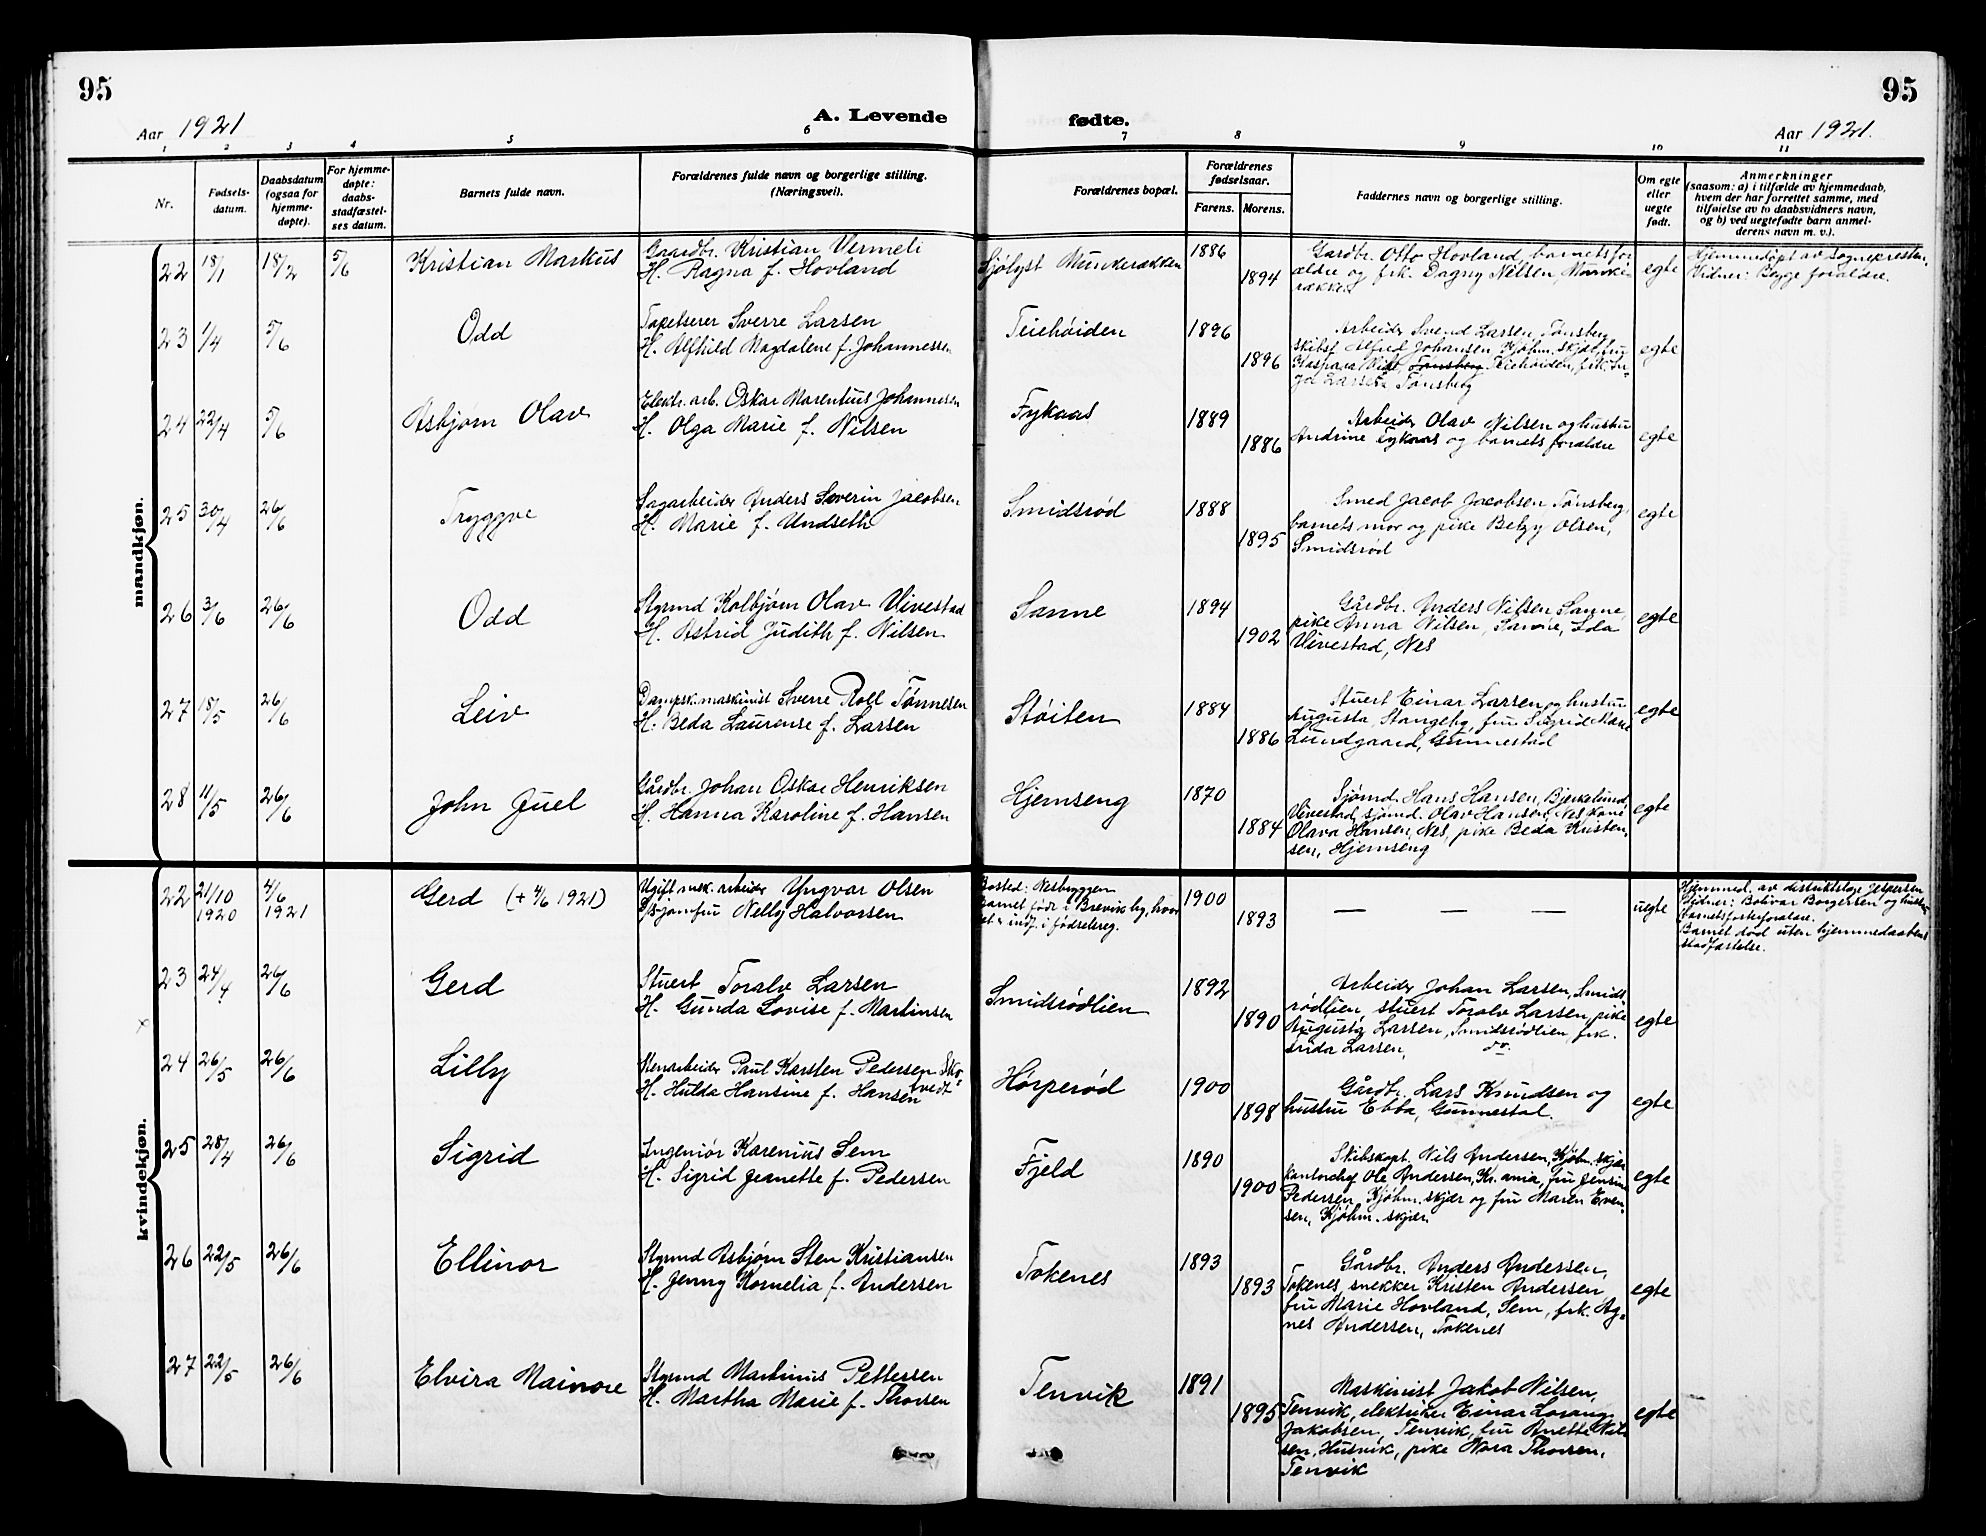 95
95
Aar 1921
A. Levende
fødte.
Aar 1921.
1 2 3 4 5 6 7 8 9 10 11
Nr.
Fødsels-
datum.
Daabsdatum
(ogsaa for
hjemme-
døpte).
For hjemme-
døpte:
daabs-
stadfæstel-
ses datum.
Barnets fulde navn.
Forældrenes fulde navn og borgerlige stilling.
(Næringsvei).
Forældrenes bopæl.
Forældrenes
fødselsaar.
Farens. Morens.
Faddernes navn og borgerlige stilling.
Om egte
eller
uegte
født.
Anmerkninger
(saasom: a) i tilfælde av hjemmedaab,
hvem der har forrettet samme, med
tilføielse av to daabsvidners navn,
og b) ved uegtefødte barn anmel-
derens navn m. v.).
mandkjøn.
22 18/1 18/2 5/6 Kristian Markus
Gaardbr. Kristian Vermeli
H. Ragna f. Hovland
Sjølyst Munkerækken
1886
1894
Gardbr. Otto Hovland, barnets for
ældre og frk. Dagny Nilsen, Munke
rækken
egte
Hjemmedøpt av sognepresten.
Vidner: Begge forældre.
23 1/4 5/6 Odd
Tapetserer Sverre Larsen
H. Alfhild Magdalene f. Johannessen
Teiehøiden
1896
1896
Arbeider Svend Larsen, Tønsberg
skibst. Alfred Johansen, Kjøbm. skjær, fru
Tønsberg Teiehøiden, frk. In-
Larsen Tønsberg
egte
24 22/4 5/6 Asbjørn Olav
Elektr. arb. Oskar Marentius Johannesen
H. Olga Marie f. Nilsen
Fykaas
1889
1886
Arbeider Olav Nilsen og hustru
Andrine Fykaas og barnets forældre
egte
25 30/4 26/6 Tryggve
Sagarbeider Anders Severin Jacobsen
H. Marie f. Undseth
Smidsrød
1888
1895
Smed Jacob Jacobsen Tønsberg,
barnets mor og pike Betzy Olsen,
Smidsrød
egte
26 3/6 26/6 Odd
Styrmd Kolbjørn Olav Vivestad
H. Astrid Judith f. Nilsen
Sanne
1894
1902
Gårdbr. Anders Nilsen Sanne
pike Anna Nilsen, Sanne, Ida
Vivestad, Nes
egte
27 18/5 26/6 Leiv
Dampsk. maskinist Sverre Roll Tønnesen
H. Beda Laurense f. Larsen
Støiten
1884
1886
Stuert Einar Larsen og hustru
Augusta, Stangeby, fru Sigrid Marie
Lundgaard, Gunnestad
egte
28 11/5 26/6 John Juel
Gårdbr. Johan Oskar Henriksen
H. Hanna Karoline f. Hansen
Hjemseng
1870
1884
Sjømd. Hans Hansen, Bjerkelund,
Vivestad, sjømd. Olav Hansen, Nes, kone
Olava Hansen, Nes, pike Beda Kristen-
sen, Hjemseng
egte
kvindekjøn.
22 21/10 1920 4/6 1921 Gerd (+ 4/6 1921)
Ugift mek. arbeider Yngvar Olsen
Nelly Halvorsen
Bosted: Nesbryggen
Barnet født i Brevik by, hvor
det er indf. i fødselsreg.
1900
1893
— — —
uegte
Hjemmed. av distriktslæge Jespersen
Vidner: Bolivar Borgersen og hustru
barnets fosterforældre.
Barnet død uten hjemmedaabens
stadfæstelse.
23 24/4 26/6 Gerd
Stuert Toralv Larsen
H. Gunda Lovise f. Martinsen
Smidsrødlien
1892
1890
Arbeider Johan Larsen, Smids-
rødlien, stuert Toralv Larsen, pike
Augusta Larsen, Smidsrødlien, frk.
Frida Larsen, do.
egte
24 26/5 26/6 Lilly
Stenarbeider Paul Karsten Pedersen Sko-
tvedt
H. Hulda Hansine f. Hansen
Hørperød
1900
1898
Gårdbr. Lars Knudsen og
hustru Ebba, Gunnestal.
egte
25 28/4 26/6 Sigrid
Ingeniør Karenius Sem
H. Sigrid Jeanette f. Pedersen
Fjeld
1890
1900
Skibskapt. Nils Andersen, Kjøbm. skjær
kontorchef Ole Andersen, Kr.ania, fru Jensine
Pedersen, Kjøbm. skjær og fru Maren Even-
sen, Kjøbm. skjær.
egte
26 22/5 26/6 Ellinor
Styrmd Asbjørn Sten Kristiansen
H. Jenny Kornelia f. Andersen
Tokenes
1893
1893
Gårdbr. Anders Andersen,
Tokenes, snekker Kristen Andersen
fru Marie Hovland, Sem, frk. Ag-
nes Andersen, Tokenes
egte
27 22/5 26/6 Elvira Mainore
Styrmd Martinius Pettersen
H. Martha Marie f. Thorsen
Tenvik
1891
1895
Maskinist Jakob Nilsen,
Tenvik, elektriker Einar Lorang
Jakobsen, Tenvik, fru Anette Nil-
sen, Husvik, pike Nora Thorsen,
Tenvik
egte